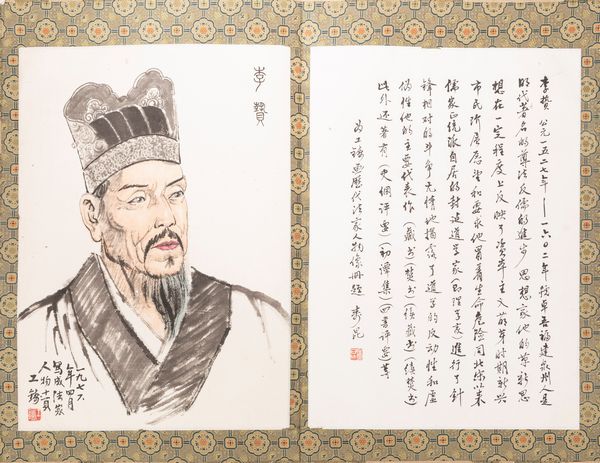 李贄
一九七六
年四月
寫成法家
人物
李贄 公元一五二七年——一六〇二年 號卓吾 福建泉州 是
明代著名的尊法反儒的進步思想家他的某些思
想在一定程度上反映了資本主义萌芽时期新兴
市民階层愿望和要求他冒着生命危险同北宋以来
儒家正統派自居的封建道学家(即理学家)進行了針
鋒相对的斗争无情地揭露了道学的反动性和虚
伪性他的主要代表作(藏书)(焚书)(續藏书)(續焚书)
此外还著有(史纲评要)(初潭集)(四書评)等
为工 画历代法家人物像册題